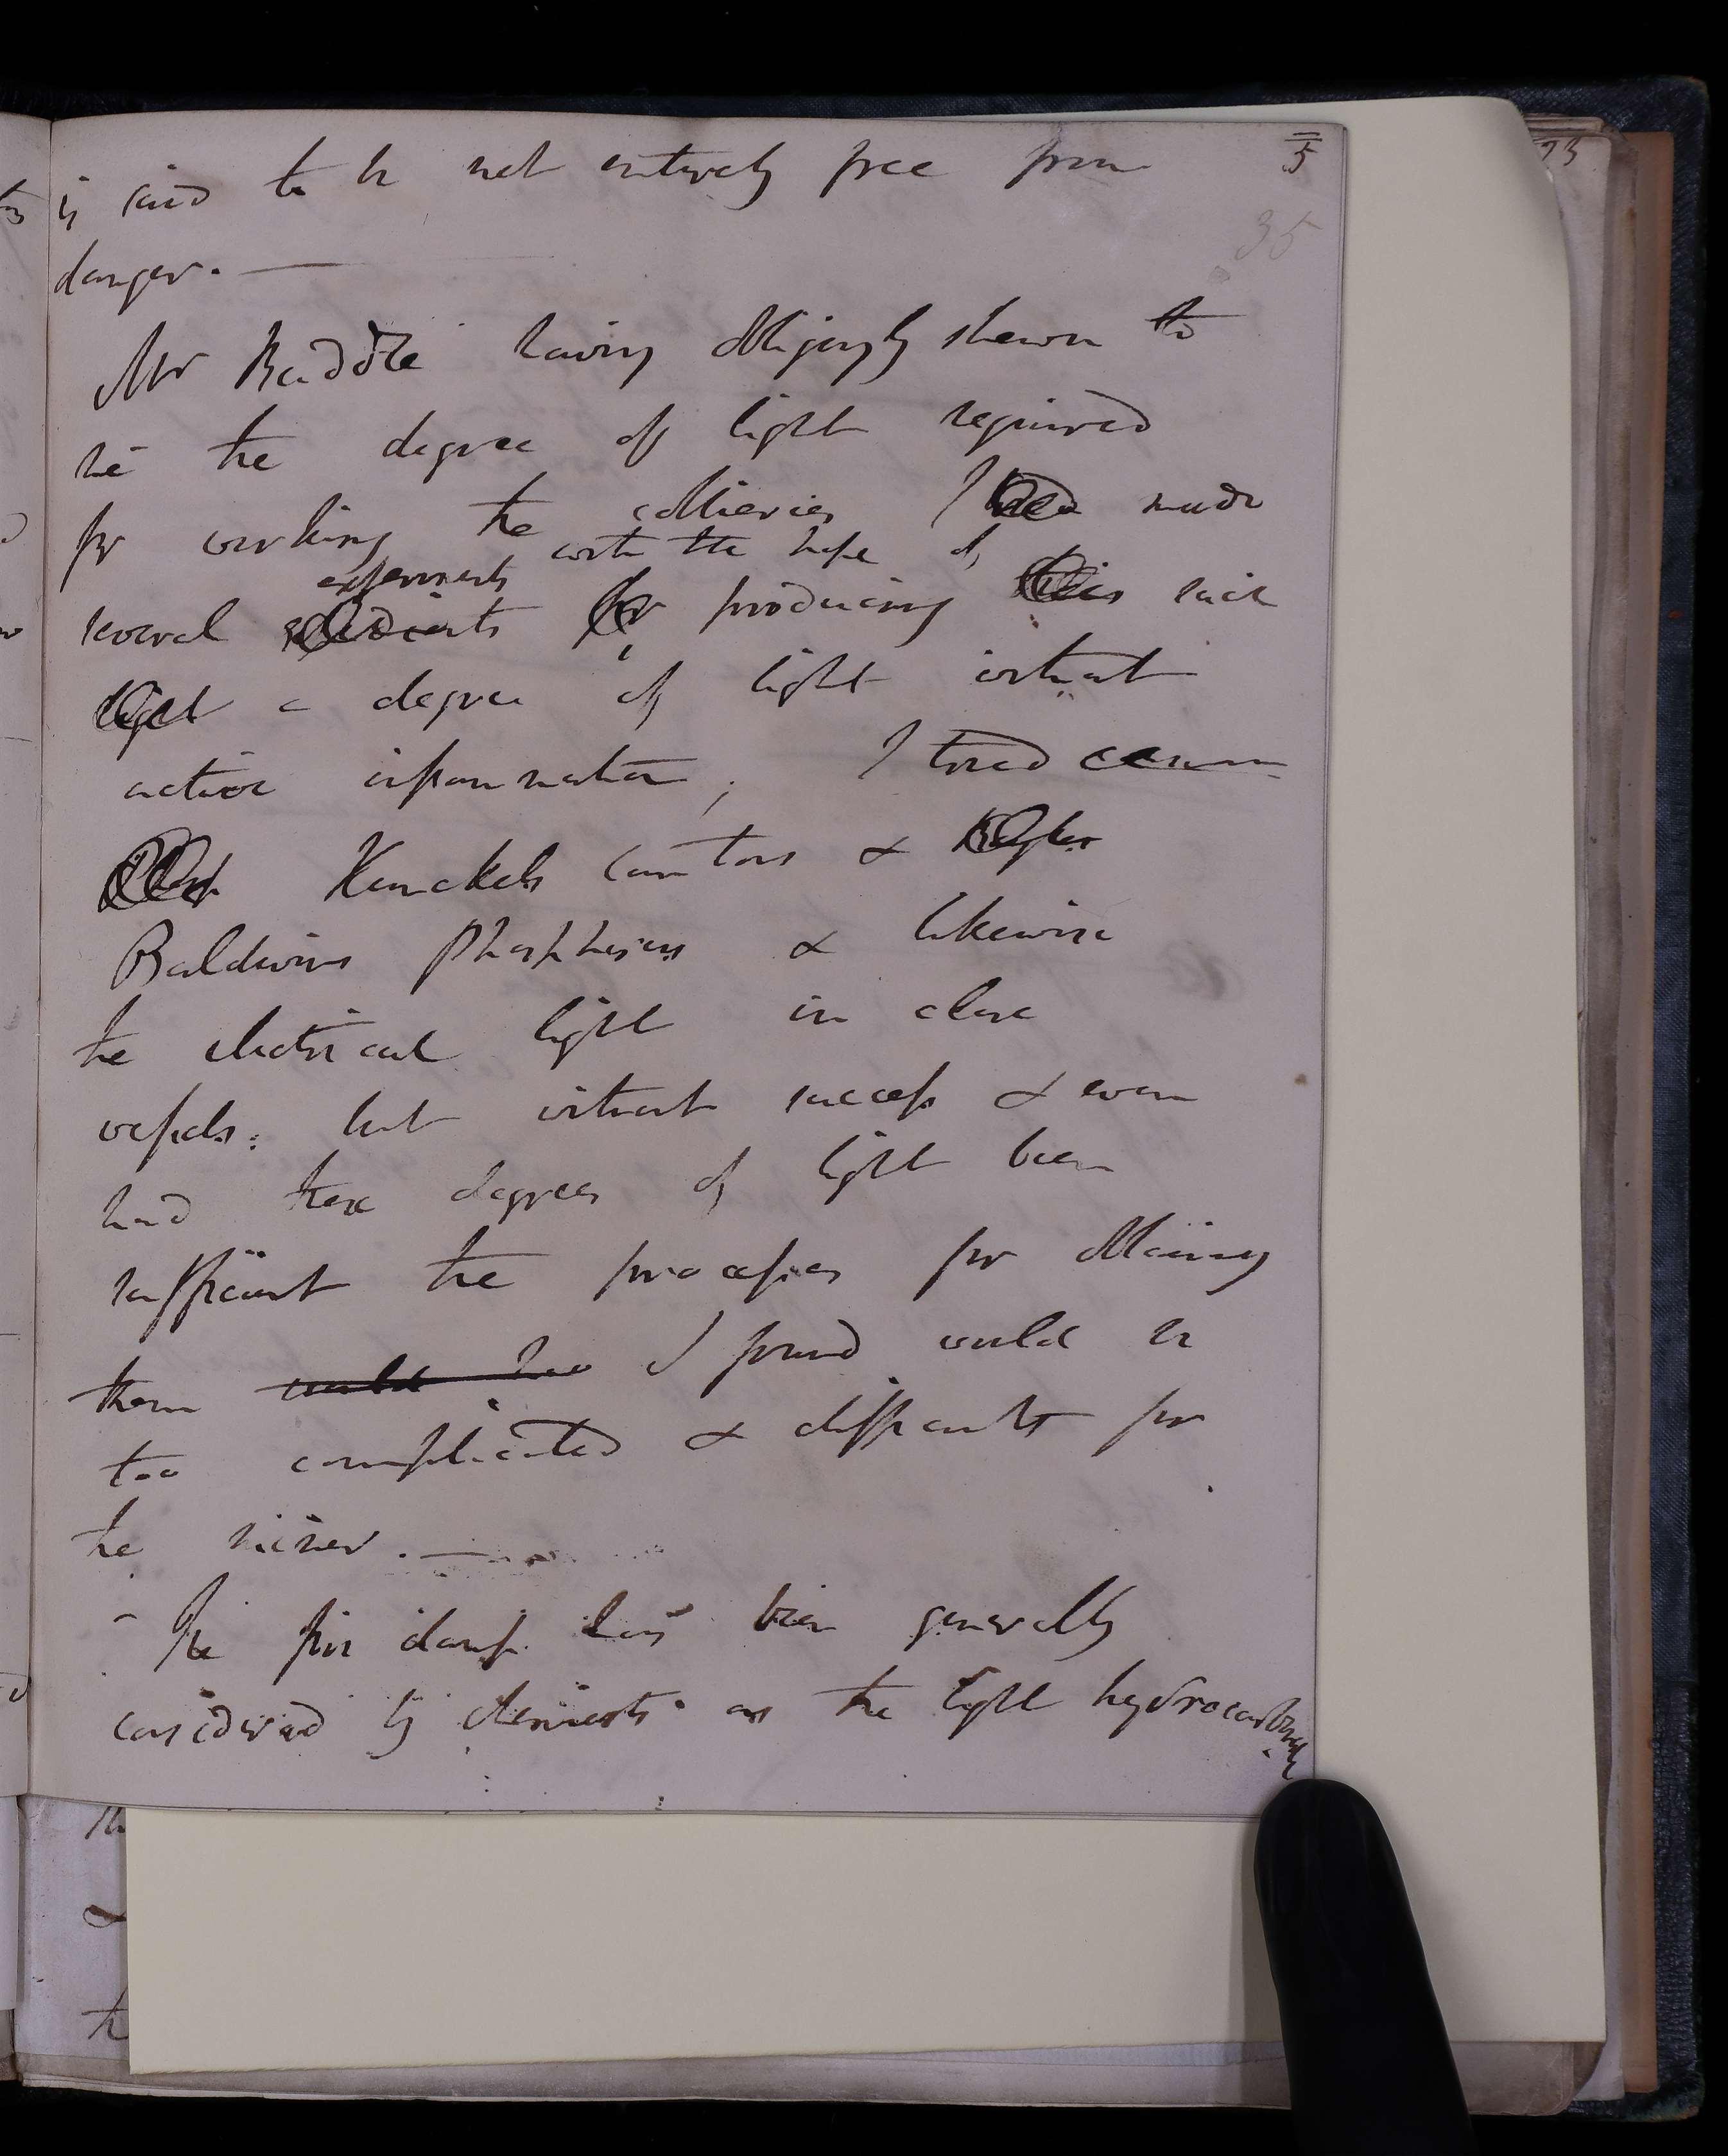 5
35
is said to be not entirely free from
danger. —
Mr Buddle having obligingly shewn to
me the degree of light required
for working the collieries I made
experiments with the hope of
several for producing such
a degree of light without
active inflammation; I tried
Kunckels Cantons &
Baldwins Phosphorus & likewise
the electrical light in close
vessels: but without success & even
had these degrees of light been
sufficient the processes for obtaining
them would have I found would be
too complicated & difficult for
the miner. —
- The fire damp has been generally
considered by chemists as the light hydrocarbonate